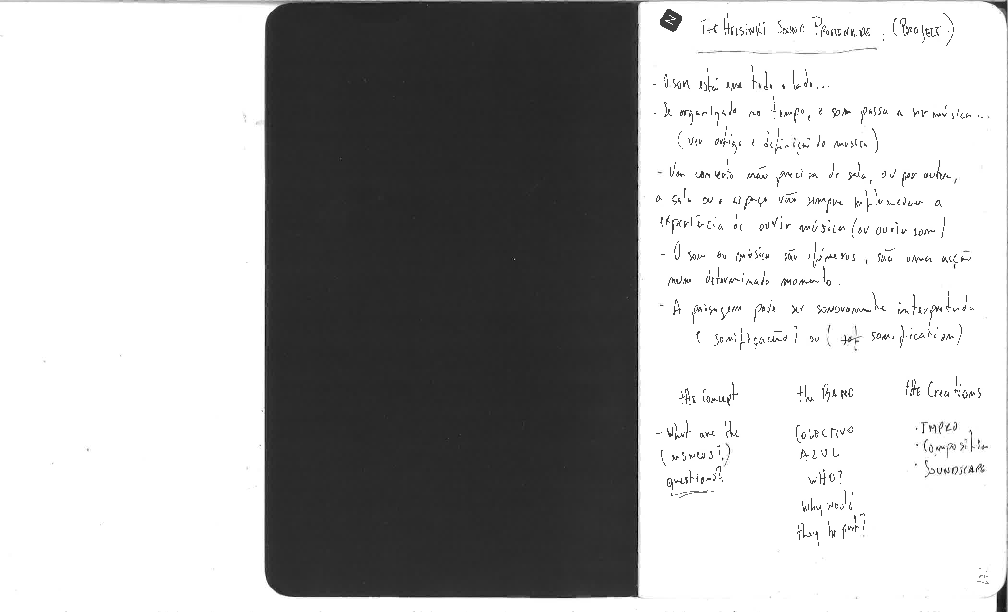 N
THE HELSINKI SOUND PROMENADE. (PROJECT)
- O som está em todo o lado...
- Se organizado no tempo, o som passa a ser música...
(ver artigo e definição de musica)
- Um concerto não precisa de sala, ou por outra,
a sala ou o espaço vão sempre influenciar a
experiência de ouvir música (ou ouvir som)
- O som ou música são efémeros, são uma acção
num determinado momento.
- A paisagem pode ser sonoramente interpretada
(sonificação) ou ( sonification)
the concept
- What are the
(answers?)
questions?
the BAND
COLECTIVO
AZUL
WHO?
Why would
they be part?
the Creations
• IMPRO
• Composition
• SOUNDSCAPE